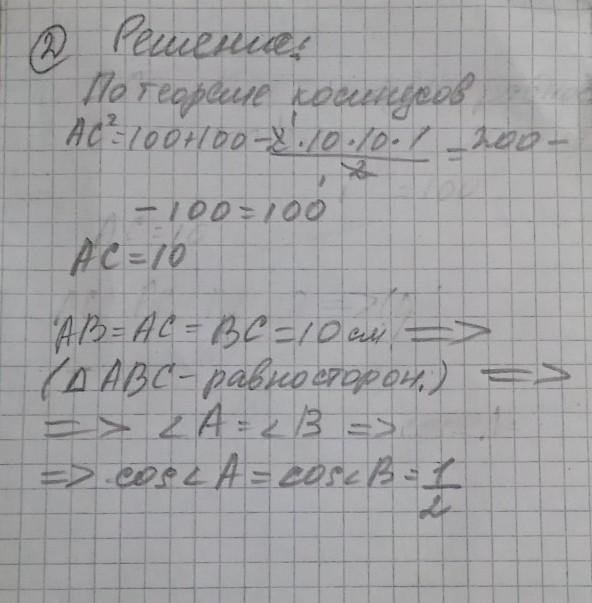 ② Решение:
По теореме косинусов
AC²=100+100-2·10·10·1/2=200-
-100=100
AC=10
AB=AC=BC=10см =>
(△ABC-равносторон.) =>
=> ∠A=∠B =>
=> cos∠A=cos∠B=1/2